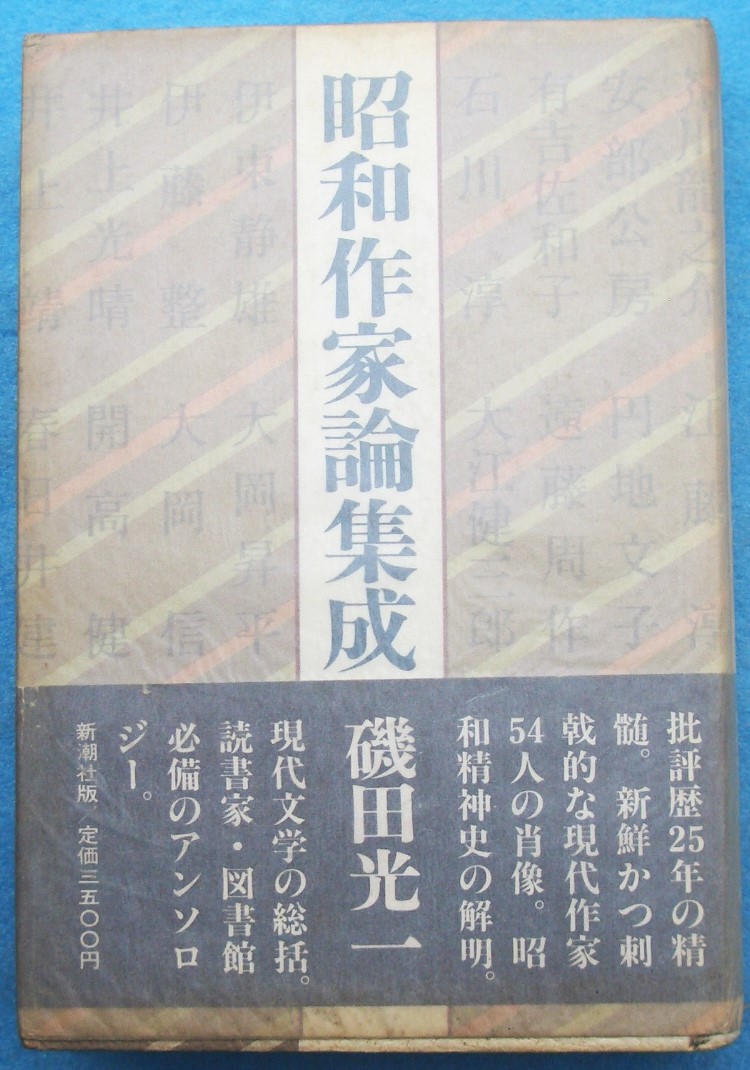 芥川龍之介 江藤 淳
安部公房 円地文子
有吉佐和子 遠藤周作
石川 淳 大江健三郎
昭和作家論集成
伊東静雄 大岡昇平
伊藤 整 大岡 信
井上光晴 開高 健
井上 靖 春日井建
批評歴25年の精
髄。新鮮かつ刺
戟的な現代作家
54人の肖像。昭
和精神史の解明。
磯田光一
現代文学の総括。
読書家・図書館
必備のアンソロ
ジー。
新潮社版/定価三五〇〇円